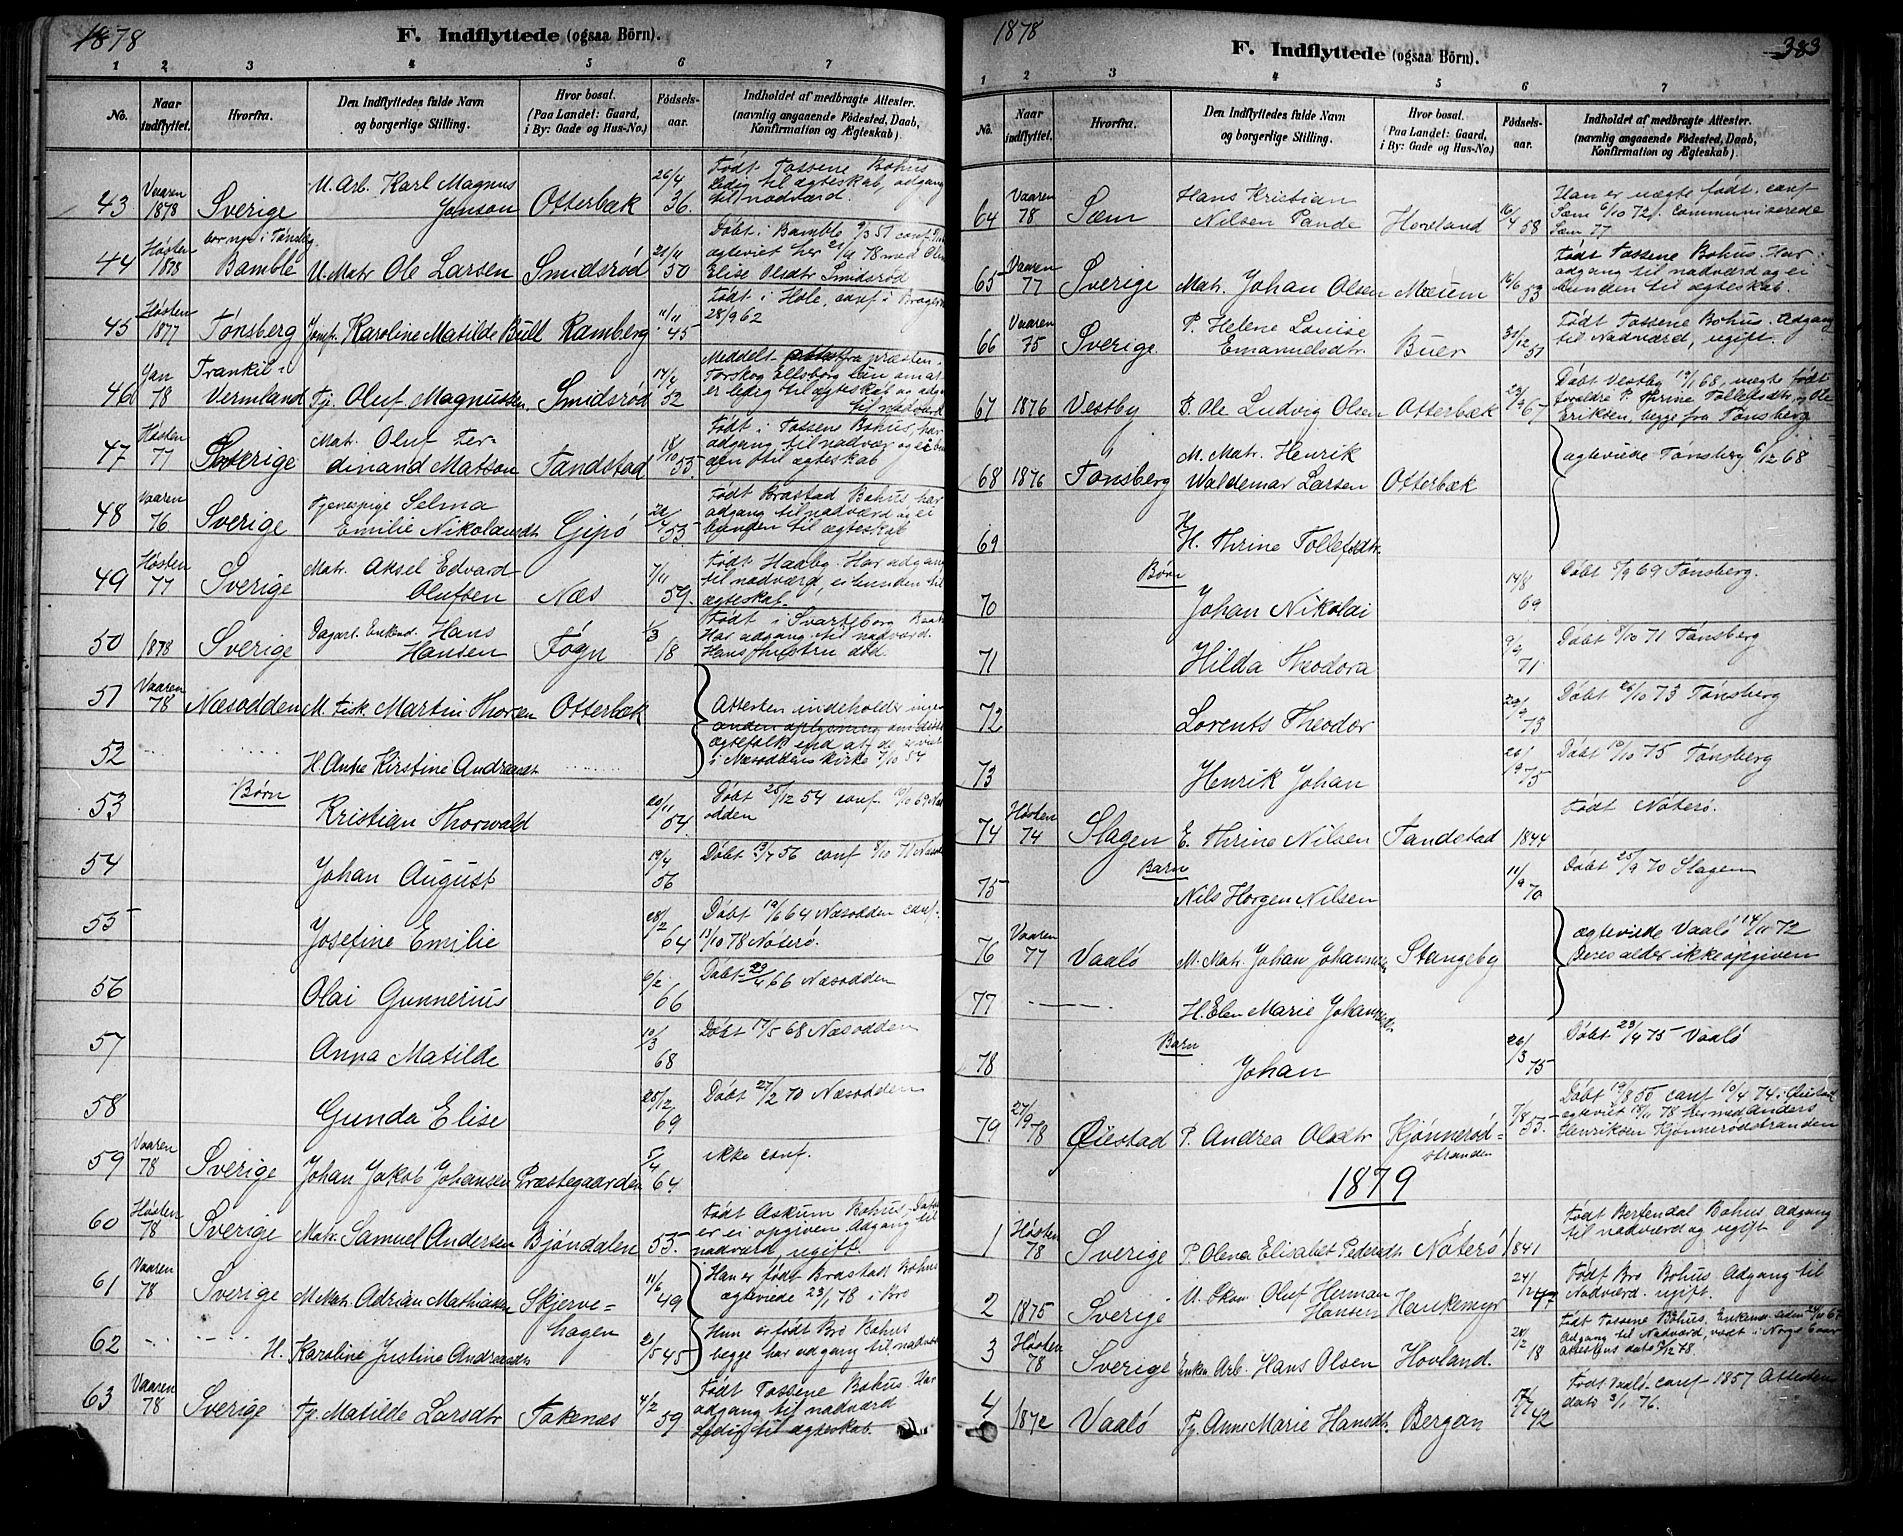 1878
F. Indflyttede (ogsaa Börn).
1 2 3 4 5 6 7
No. Naar indflyttet. Hvorfra. Den Indflyttedes fulde Navn og borgerlige Stilling. Hvor bosat. (Paa Landet: Gaard, i By: Gade og Hus-No.) Födsels-aar. Indholdet af medbragte Attester. (navnlig angaaende Födested, Daab, Konfirmation og Ægteskab).
43 Vaaren 1878 Sverige U. Arb. Karl Magnus Jonson Otterbæk 26/4 36. Født Tossene Bohus ledig til ægteskab, adgang til nadværd.
44 Høsten 1878 bor nu i Tønsberg. Bamble U. Matr. Ole Larsen Smidsrød 21/11 50 Døbt i Bamble 9/3 51 conf. ægteviet her 21/11 78 med Elise Olsdtr Smidsrød
45 Høsten 1877 Tønsberg Jomfr. Karoline Matilde Bull Ramberg 11/11 45 Født i Hole, conf i Bragernes 28/9 62
46 Jan 78 Trankil i Vermland Tj. Oluf Magnussen Smidsrød 14/4 52 Meddelt fra præsten i Torskog Elfsborg Län om at er ledig til ægteskab og adgang til nadværd
47 Høsten 77 Sverige Matr. Oluf Ferdinand Matson Tandstad 18/10 55. Født i Tossene Bohus, har adgang til nadvær og ei bunden til ægteskab
48 Vaaren 76 Sverige Tjenespige Selma Emilie Nikolausdtr Gipø 22/4 53 Født Brastad Bohus har adgang til nadværd og ei bunden til ægteskab
49 Høsten 77 Sverige Matr. Aksel Edvard Olufsen Næs 7/11 59. Født Haaby. Har adgang til nadværd, ei bunden til ægteskab.
50 1878 Sverige Dagarb. Enkem. Hans Hansen Føgn 1/3 18 Født i Svarteborg Har adgang til nadværd. Hans hustru død.
51 Vaaren 78 Næsodden M. Fisk. Martin Thorsen Otterbæk Attesten indeholder ingen anden oplysning om disse ægtefolk end at de er viede i Næsoddens kirke 7/10 54
52 H. Anne Kirstine Andreasdt
Børn
53 Kristian Thorwald 20/11 54. Døbt 25/12 54 conf. 10/10 69 Næsodden
54 Johan August 19/4 56 Døbt 13/7 56 conf 8/10 71 Næsodden
55 Josefine Emilie 28/2 64 Døbt 19/6 64 Næsodden conf. 13/10 78 Nøterø.
56 Olai Gunnerius 6/2 66 Døbt 29/4 66 Næsodden
57 Anna Matilde 10/3 68 Døbt 17/5 68 Næsodden
58 Gunda Elise 25/12 69 Døbt 27/2 70 Næsodden
59 Vaaren 78 Sverige Johan Jakob Johansen Præstegaarden 5/4 64 ikke conf.
60 Høsten 78 Sverige Matr. Samuel Andersen Bjøndalen 55. Født Askum Bohus. Dato er ei opgiven. Adgang til nadværd, ugift.
61 Vaaren 78 Sverige M. Matr. Adrian Mathiassen Skjervehagen 11/6 49 Han er født Brastad Bohus ægteviede 23/1 78 i Bro
62 H. Karoline Justine Andreasdt 20/5 45 Hun er født Bro Bohus begge har adgang til nadværd
63 Vaaren 78 Sverige Tj. Matilde Larsdtr Toknæs 4/2 59 Født Tossene Bohus. Har adgang til nadværd ledig til ægteskab.
1878
383
F. Indflyttede (ogsaa Börn).
1 2 3 4 5 6 7
No. Naar indflyttet. Hvorfra. Den Indflyttedes fulde Navn og borgerlige Stilling. Hvor bosat. (Paa Landet: Gaard, i By: Gade og Hus-No.) Födsels-aar. Indholdet af medbragte Attester. (navnlig angaaende Födested, Daab, Konfirmation og Ægteskab).
64 Vaaren 78 Sæm Hans Kristian Nilsen Pande Hoveland 16/4 58 Han er uægte født. conf Sæm 6/10 72. communiserede Sæm 77
65 Vaaren 77 Sverige Matr. Johan Olsen Mærum 16/6 53 Født Tossene Bohus. Har adgang til nadværd og ei bunden til ægteskab.
66 Vaaren 75 Sverige. P. Helene Louise Emanuelsdtr Buer 31/12 51 Født Tossene Bohus. Adgang til Nadværd, ugift.
67 1876 Vestby B. Ole Ludvig Olsen Otterbæk 29/12 67 Døbt Vestby 19/1 68, uægte født forældre P. Thrine Tollefsdtr og Ole Eriksen, begge fra Tønsberg
68 1876 Tønsberg M. Matr. Henrik Waldemar Larsen Otterbæk ægteviede Tønsberg 6/12 68
69 H. Thrine Tollefsdtr.
Børn
70 Johan Nikolai 14/8 69 Døbt 5/9 69 Tønsberg.
71 Hilda Theodora 9/9 71 Døbt 8/10 71 Tønsberg
72 Lorents Theodor 20/9 73 Døbt 26/10 73 Tønsberg
73 Henrik Johan 26/9 75 Døbt 10/10 75 Tønsberg
74 Høsten 74 Slagen E. Thrine Nilsen Tandestad 1844 Født Nøterø.
Barn
75 Nils Horgen Nilsen 11/9 70 Døbt 25/9 70 Slagen
76 Vaaren 77 Vaalø M. Matr. Johan Johannesen Stangeby ægteviede Vaalø 14/11 72 Deres alder ikke opgiven
77 H. Elen Marie Johannesdtr
Barn
78 Johan 26/3 75 Døbt 23/4 75 Vaalø
79 27/9 78 Øiestad P. Andrea Olsdtr Hjønnerødstranden 7/8 55. Døbt 19/8 55 conf 19/4 74 i Øiestad ægteviet 18/11 78 her med Anders Henriksen Hjønnerødstranden
1879
1 Høsten 78 Sverige P. Olena Elisabet Pedersdtr Nøterø 1841 Født Berfendal Bohus. Adgang til nadværd og ugift
2 1875 Sverige U. Oluf Herman Hansen Haukemyr 24/12 47 Født Bro Bohus Adgang til Nadværd. ugift.
3 Høsten 78 Sverige Enkem. Arb. Hans Olsen Hovland. 28/12 18 Født Tossene Bohus, Enkem. siden 67 Adgang til Nadværd, været i Norge 6 aar attestens dato 3/12 78.
4 1872 Vaalø Tj. Anne Marie Hansdtr. Bergan 17/7 42 Født Vaalø conf 1857 Attestens dato 3/1 76.